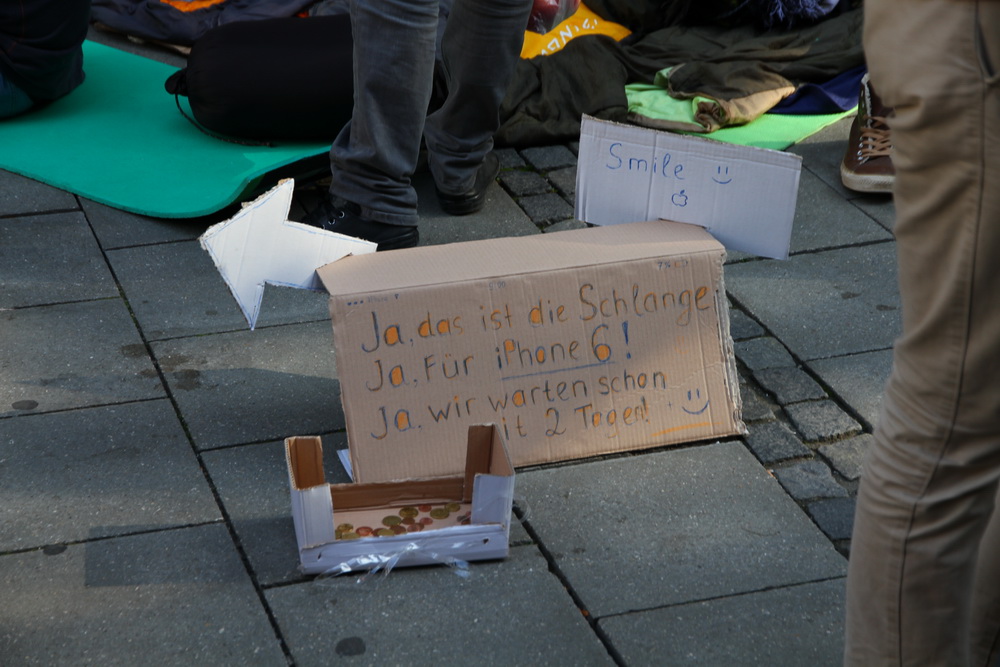 Smile
Ja, das ist die Schlange
Ja, Für iPhone 6!
Ja, wir warten schon
2 Tagen!